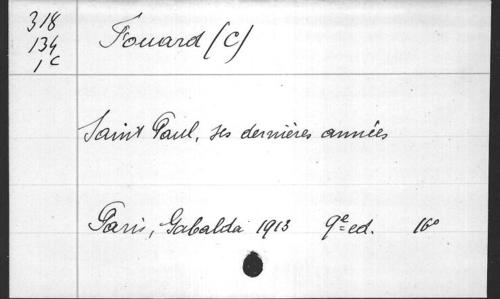 318
134
1 C
Fouard (C)
Saint Paul, ses dernières années
Paris, Gabalda 1913 9e ed. 16°